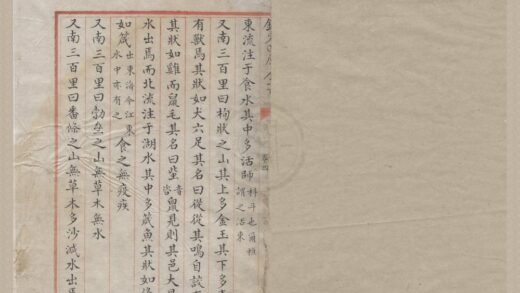 欽定四庫全書
卷四
東流注于食水其中多活師科斗也爾雅謂之活東
又南三百里曰枸狀之山其上多金玉其下多
有獸焉其狀如犬六足其名曰從從其鳴自詨
其狀如雞而鼠毛其名曰蚩音咨鼠見則其邑大旱
水出焉而北流注于湖水其中多箴魚其狀如
如箴出東海今江東水中亦有之食之無疫疾
又南三百里曰勃垒之山無草木無水
又南三百里曰番條之山無草木多沙減水出焉